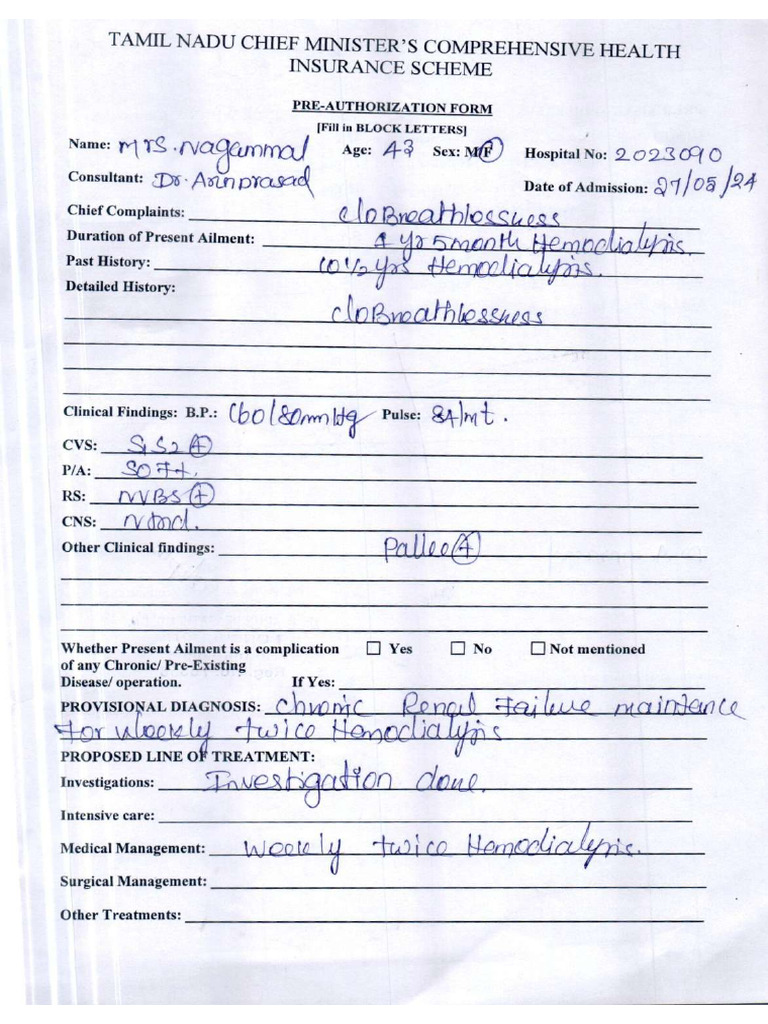 TAMIL NADU CHIEF MINISTER'S COMPREHENSIVE HEALTH
INSURANCE SCHEME
PRE-AUTHORIZATION FORM
[Fill in BLOCK LETTERS]
Name: Mrs. Nagammal Age: 43 Sex: M/F Hospital No: 2023090
Consultant: Dr. Arinprasad Date of Admission: 27/05/24
Chief Complaints: c/o Breathlossness
Duration of Present Ailment: 1 yr 5 month Hemodialysis.
Past History: 10 1/2 yrs Hemodialysis.
Detailed History:
c/o Breathlossness
Clinical Findings: B.P.: 160/80mmHg Pulse: 84/mt.
CVS: S1S2 +
P/A: Soft.
RS: NVBS +
CNS:
Other Clinical findings: Pallee +
Whether Present Ailment is a complication Yes No Not mentioned
of any Chronic/ Pre-Existing
Disease/ operation. If Yes:
PROVISIONAL DIAGNOSIS: Chronic Renal Failure maintance
For Weekly twice Hemodialysis
PROPOSED LINE OF TREATMENT:
Investigations: Investigation done.
Intensive care:
Medical Management: Weekly twice Hemodialysis.
Surgical Management:
Other Treatments: